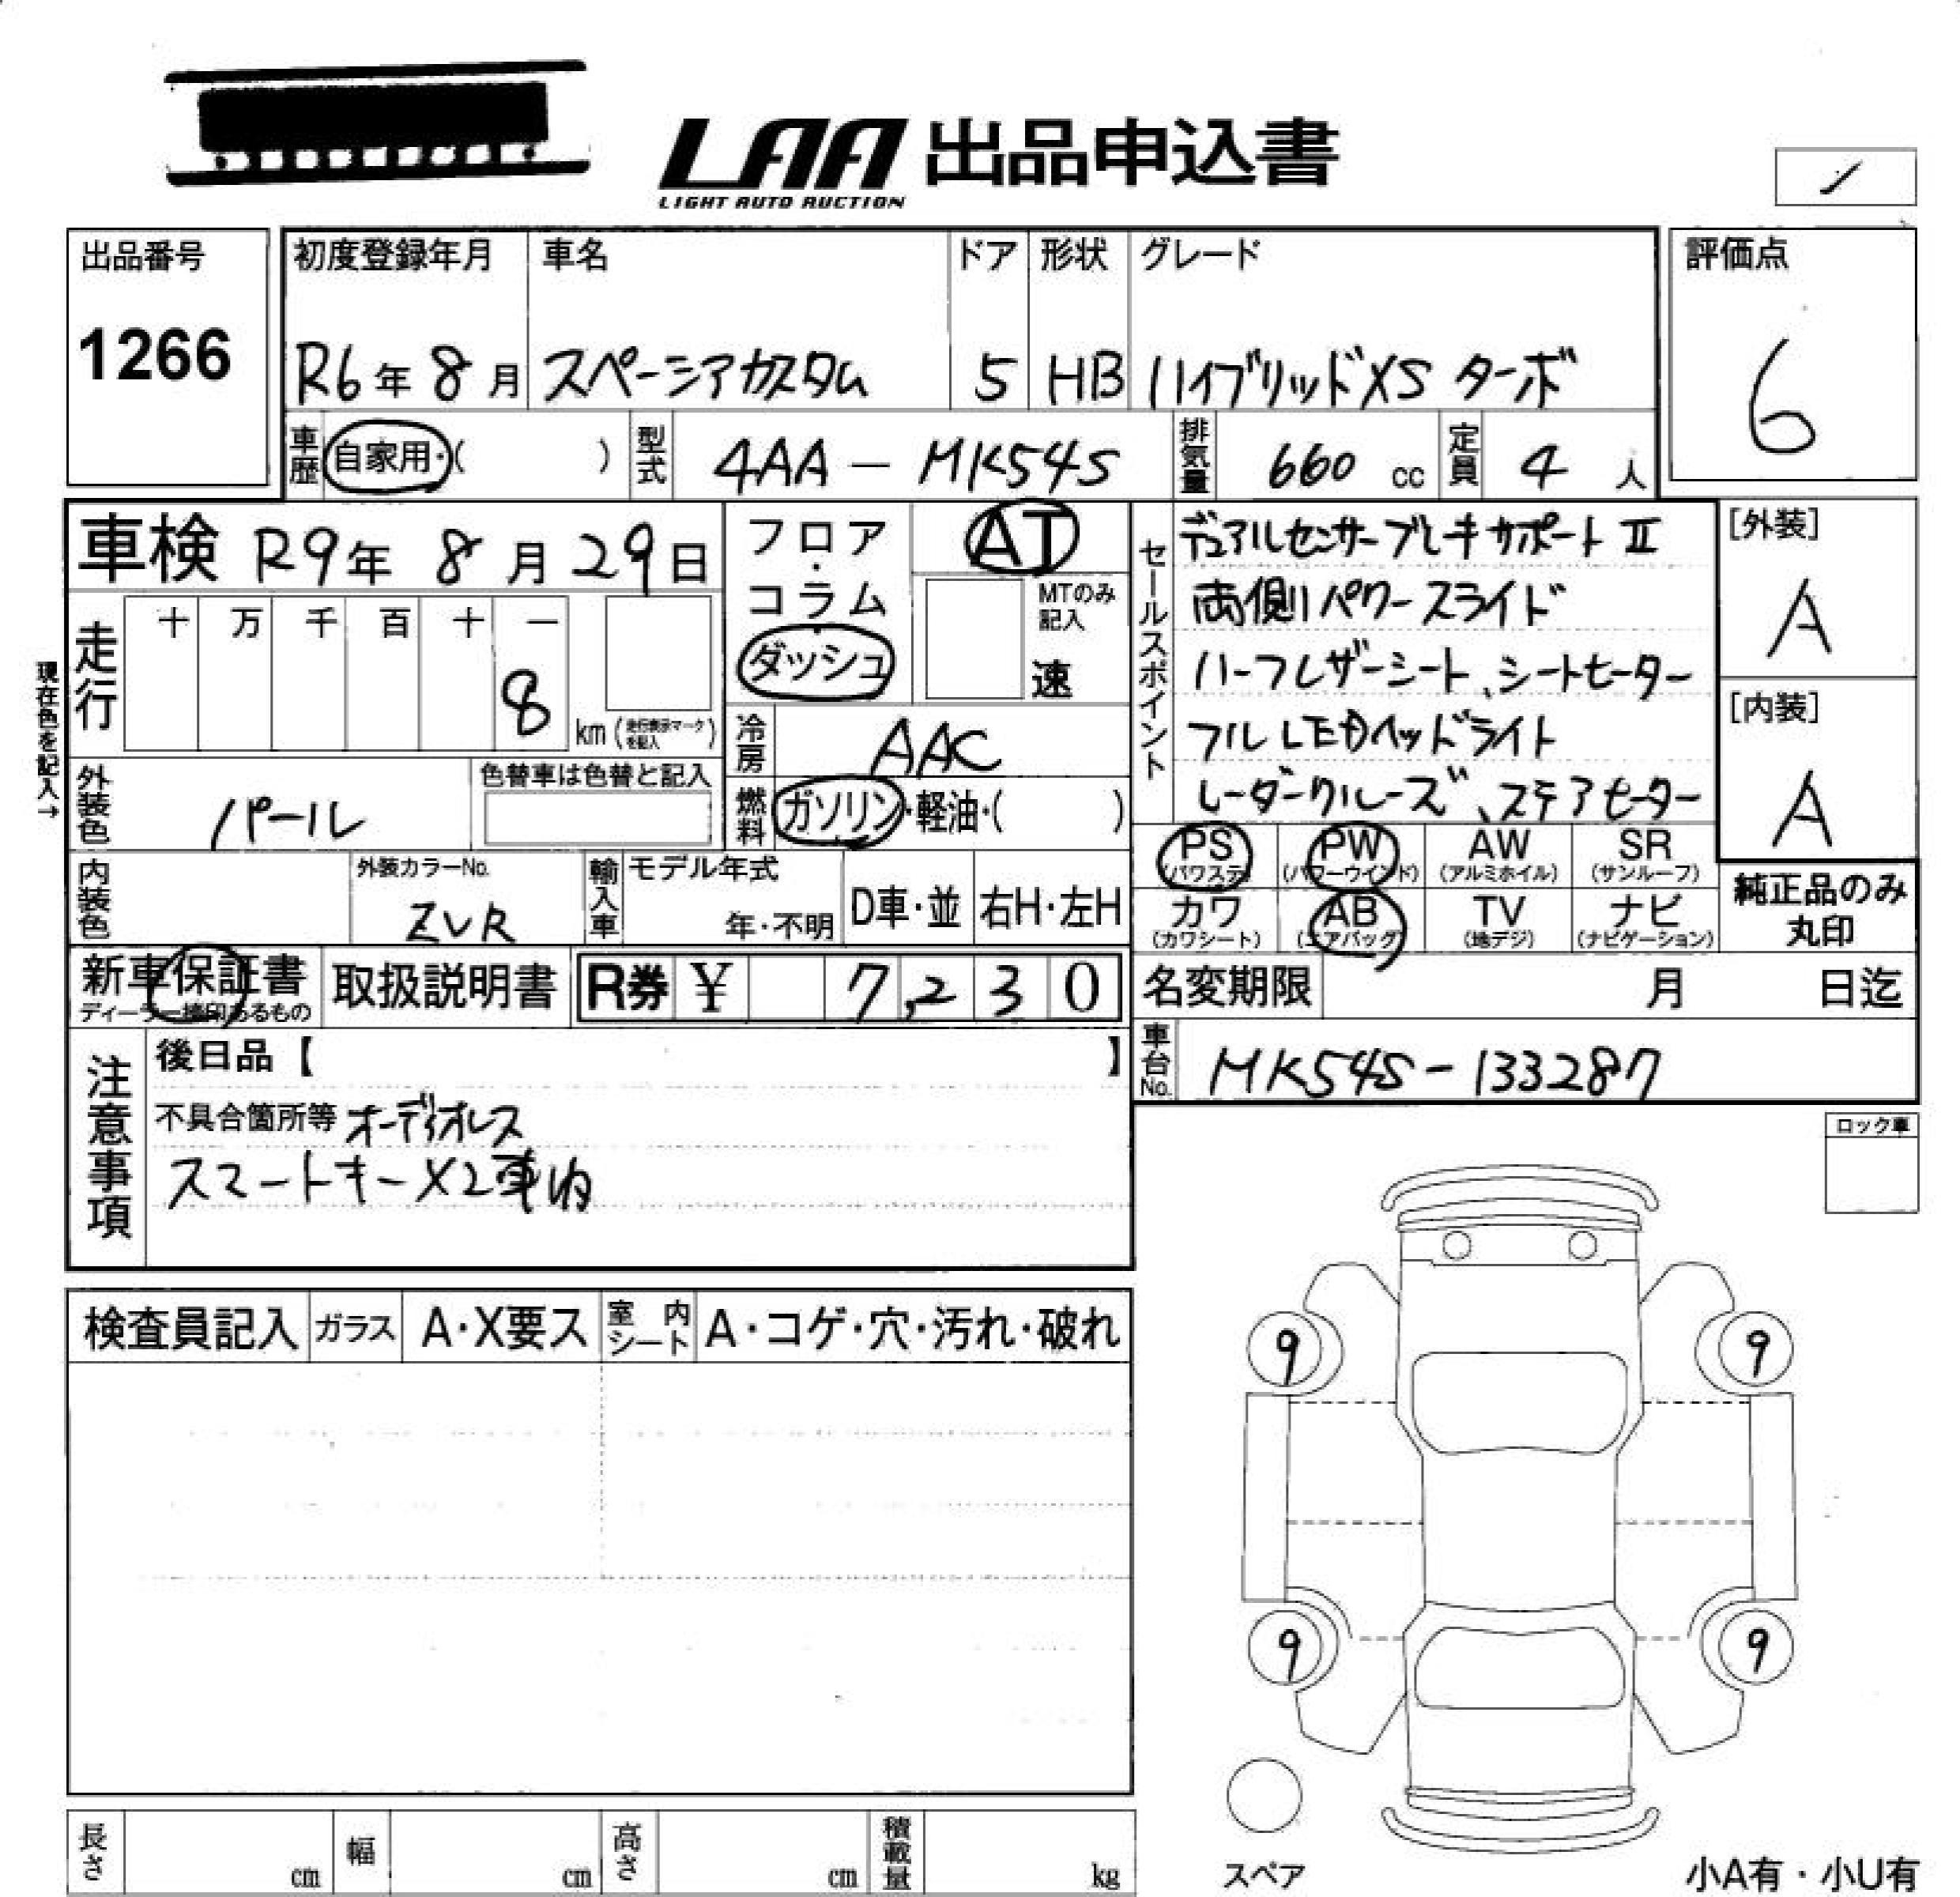 LAA 出品申込書
LIGHT AUTO AUCTION
出品番号
1266
初度登録年月 車名 ドア 形状 グレード
R6年 8月 スペーシアカスタム 5 HB ハイブリッドXS ターボ
評価点
6
車歴 自家用・( ) 型式 4AA - MK54S 排気量 660 cc 定員 4 人
車検 R9年 8月 29日
フロア・コラム
ダッシュ
AT
MTのみ記入
速
走行 十 万 千 百 十 一
8 km (走行表示マークを記入)
現在色を記入→
冷房 AAC
燃料 ガソリン・軽油・( )
外装色 パール
色替車は色替と記入
セールスポイント
デュアルセンサーブレーキサポートⅡ
両側パワースライド
ハーフレザーシート、シートヒーター
フルLEDヘッドライト
レーダークルーズ、ステアヒーター
[外装]
A
[内装]
A
内装色
外装カラーNo.
ZVR
輸入車 モデル年式
年・不明 D車・並 右H・左H
PS (パワステ) PW (パワーウインド) AW (アルミホイル) SR (サンルーフ)
カワ (カワシート) AB (エアバッグ) TV (地デジ) ナビ (ナビゲーション)
純正品のみ丸印
新車保証書
ディーラー捺印あるもの
取扱説明書 R券 ¥ 7,230
名変期限 月 日迄
車台No. MK54S-133287
注意事項
後日品【 】
不具合箇所等 オーディオレス
スマートキーX2車内
ロック車
検査員記入 ガラス A・X要ス 室内シート A・コゲ・穴・汚れ・破れ
9 9
9 9
スペア
小A有・小U有
長さ cm 幅 cm 高さ cm 積載量 kg